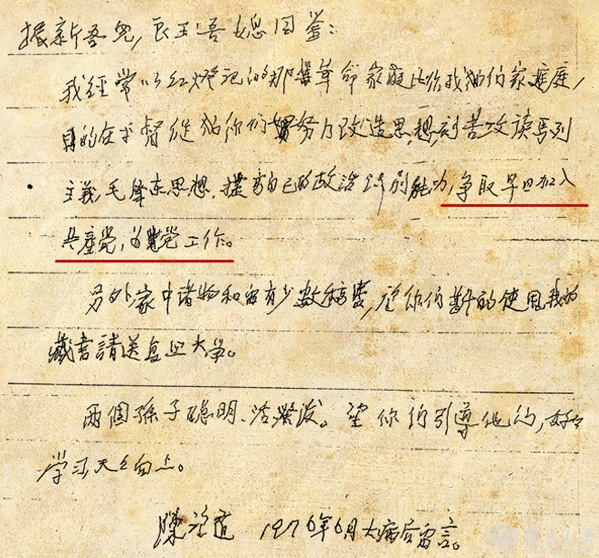 振新吾兒，良玉吾媳同鉴：
我經常以红燈记的那樣革命家庭比作我们的家庭，
目的在于督促你们努力改造思想，刻苦攻读馬列
主義毛澤东思想，提高自己的政治识别能力，争取早日加入
共產党，为党工作。
另外家中诸物和留有少数稿费，你们的使用我的
藏書請送复旦大学。
两個孫子聪明、活潑。望你们引導他们，好好
学习天天向上。
陳望道 1976年6月大病后留言。